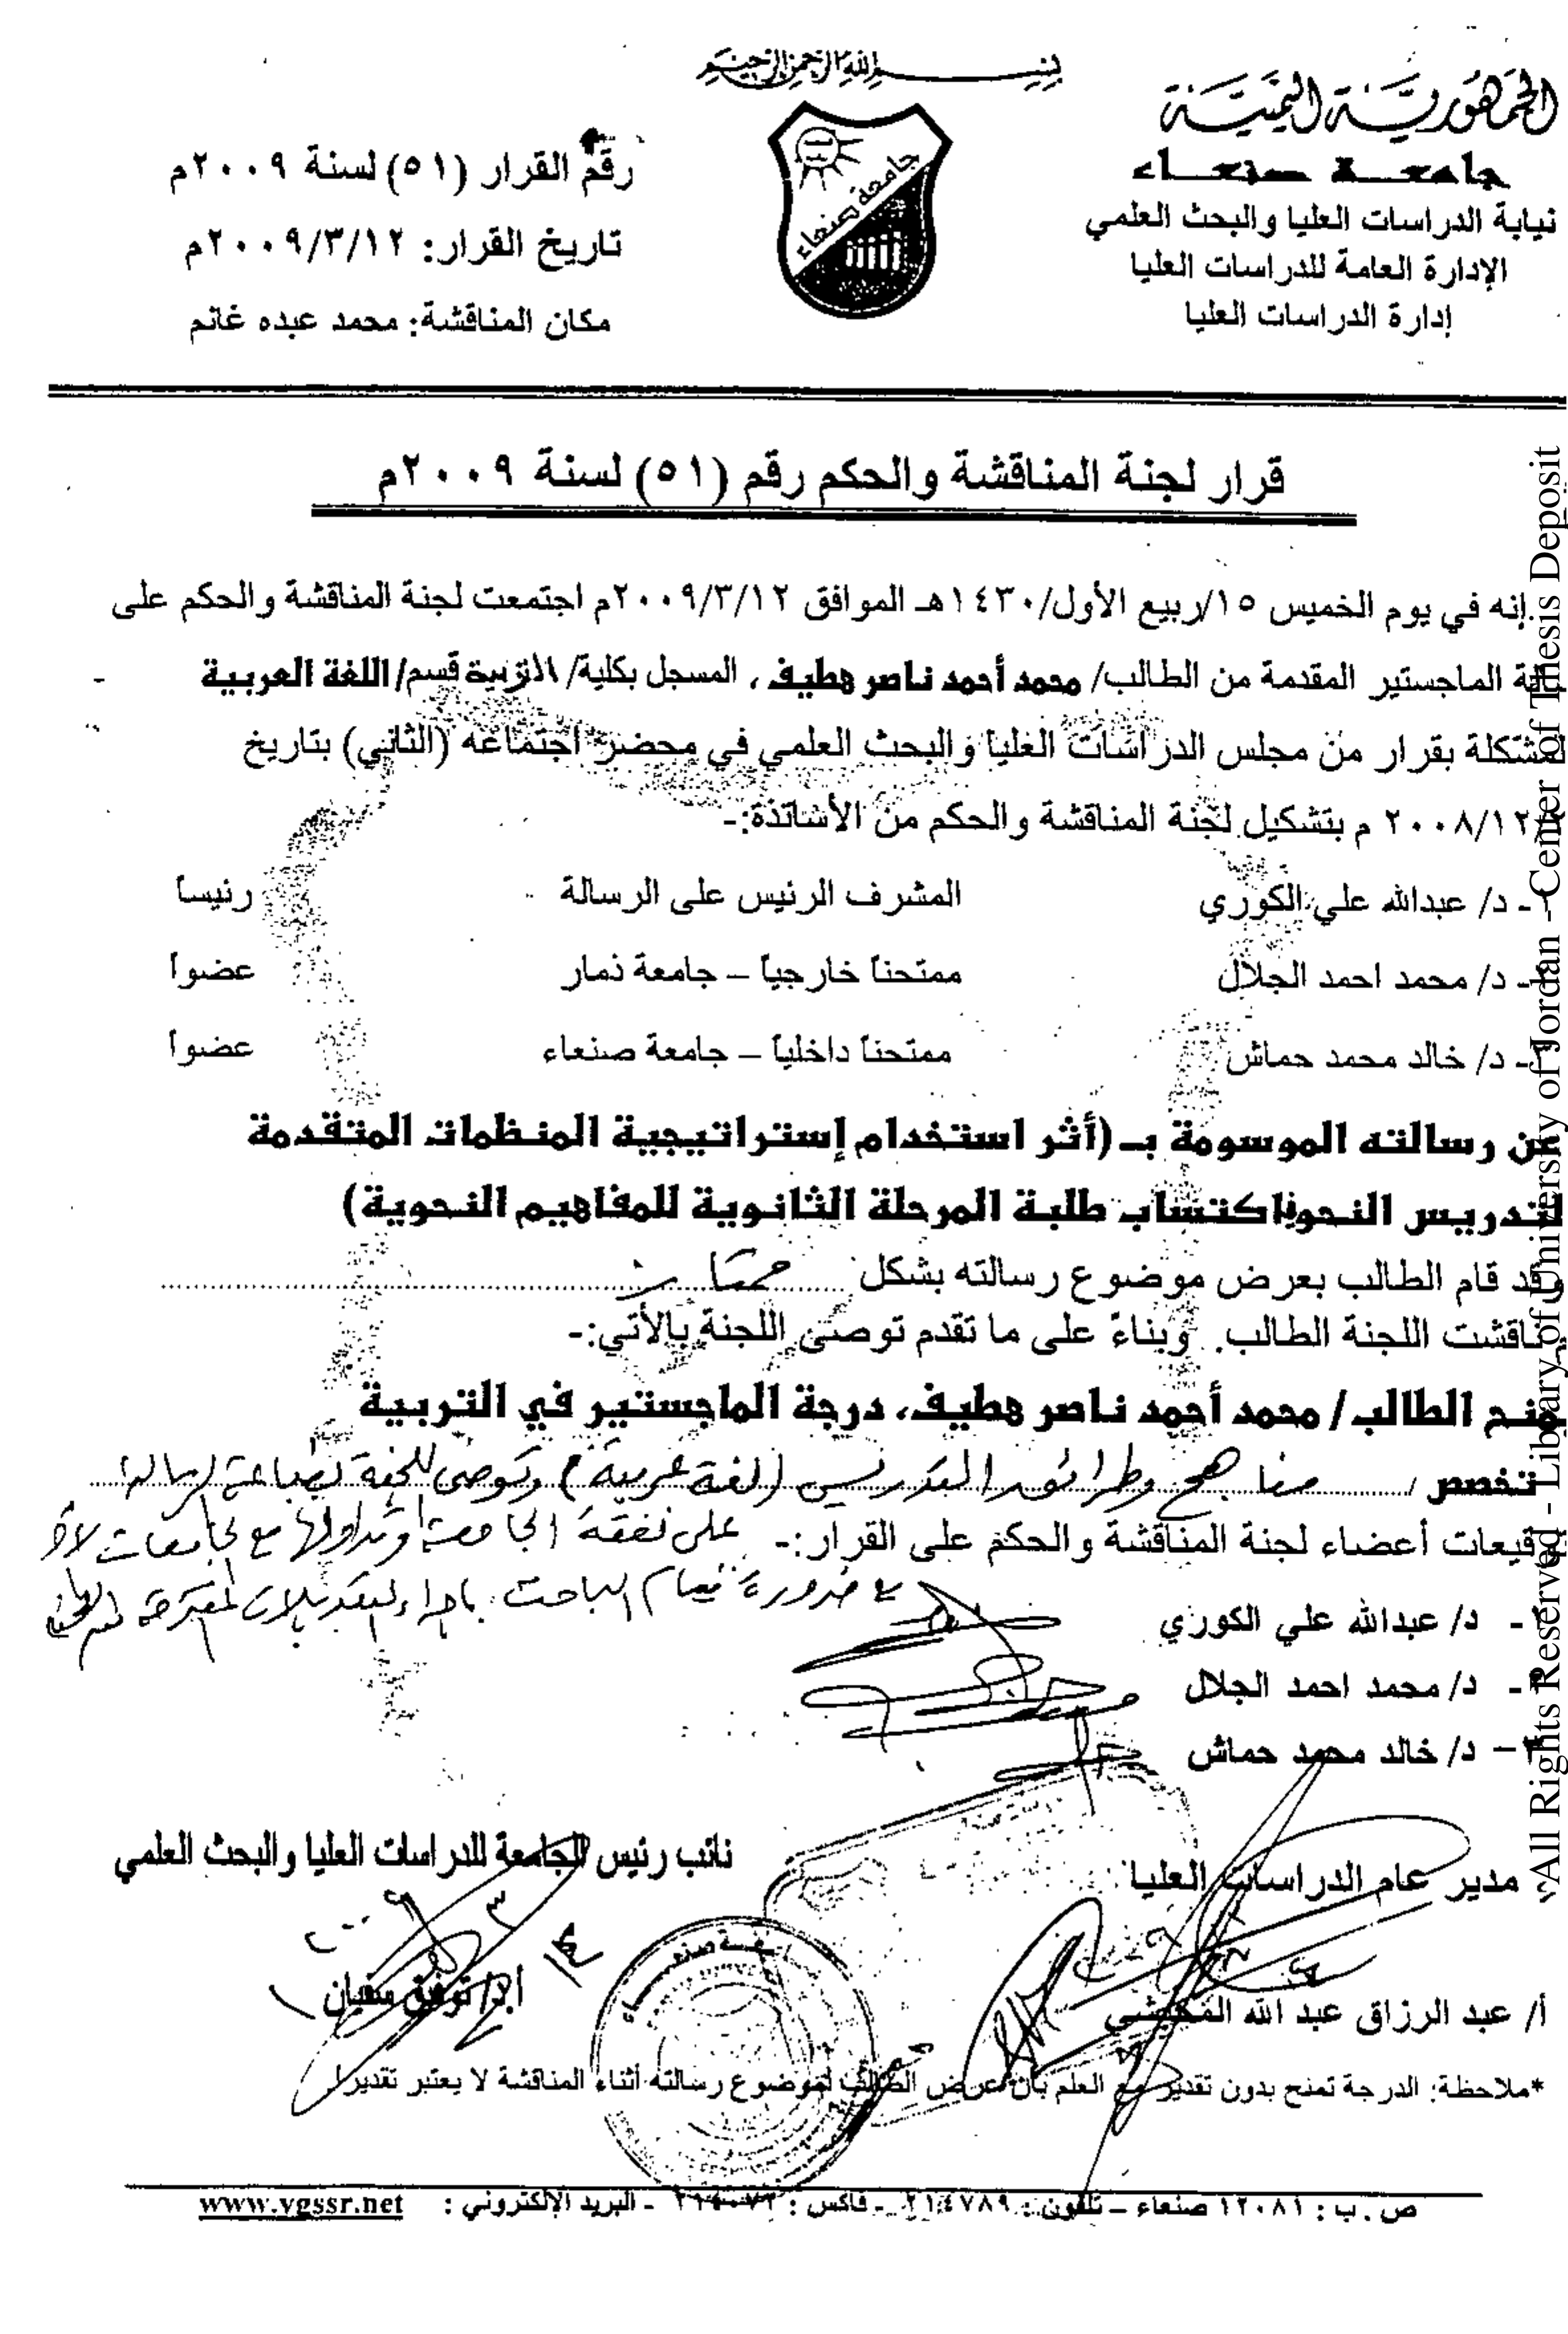 بسم الله الرحمن الرحيم
الجمهورية اليمنية
جامعة صنعاء
نيابة الدراسات العليا والبحث العلمي
الإدارة العامة للدراسات العليا
إدارة الدراسات العليا
جامعة صنعاء
رقم القرار (٥١) لسنة ٢٠٠٩م
تاريخ القرار: ٢٠٠٩/٣/١٢م
مكان المناقشة: محمد عبده غانم
قرار لجنة المناقشة والحكم رقم (٥١) لسنة ٢٠٠٩م
إنه في يوم الخميس ١٥/ربيع الأول/١٤٣٠هـ الموافق ٢٠٠٩/٣/١٢م اجتمعت لجنة المناقشة والحكم على
الماجستير المقدمة من الطالب/ محمد أحمد ناصر هطيف ، المسجل بكلية/ التربية قسم/ اللغة العربية
المشكلة بقرار من مجلس الدراسات العليا والبحث العلمي في محضر اجتماعه (الثاني) بتاريخ
٢٠٠٨/١٢ م بتشكيل لجنة المناقشة والحكم من الأساتذة:-
- د/ عبدالله علي الكوري المشرف الرئيس على الرسالة رئيساً
- د/ محمد احمد الجلال ممتحناً خارجياً – جامعة ذمار عضواً
- د/ خالد محمد حماش ممتحناً داخلياً – جامعة صنعاء عضواً
عن رسالته الموسومة بـ (أثر استخدام إستراتيجية المنظمات المتقدمة
لتدريس النحو اكتساب طلبة المرحلة الثانوية للمفاهيم النحوية)
وقد قام الطالب بعرض موضوع رسالته بشكل ممتاز
ناقشت اللجنة الطالب. وبناءً على ما تقدم توصى اللجنة بالأتي:-
منح الطالب/ محمد أحمد ناصر هطيف، درجة الماجستير في التربية
تخصص / مناهج وطرائق التدريس (لغة عربية) وتوصي اللجنة بطباعة الرسالة
توقيعات أعضاء لجنة المناقشة والحكم على القرار:- على نفقة الجامعة وتداولها مع الجامعات
مع ضرورة قيام الباحث بإجراء التعديلات المقترحة
- د/ عبدالله علي الكوري
- د/ محمد احمد الجلال
٣– د/ خالد محمد حماش
مدير عام الدراسات العليا
نائب رئيس الجامعة للدراسات العليا والبحث العلمي
أ/ عبد الرزاق عبد الله
أ.د/ توفيق سفيان
*ملاحظة: الدرجة تمنح بدون تقدير مع العلم بأن عرض الطالب لموضوع رسالته أثناء المناقشة لا يعتبر تقديرا.
ص . ب : ١٢٠٨١ صنعاء – تلفون : ٢١٤٧٨٩ - فاكس : - البريد الإلكتروني : www.vgssr.net
All Rights Reserved - Library of University of Jordan - Center of Thesis Deposit